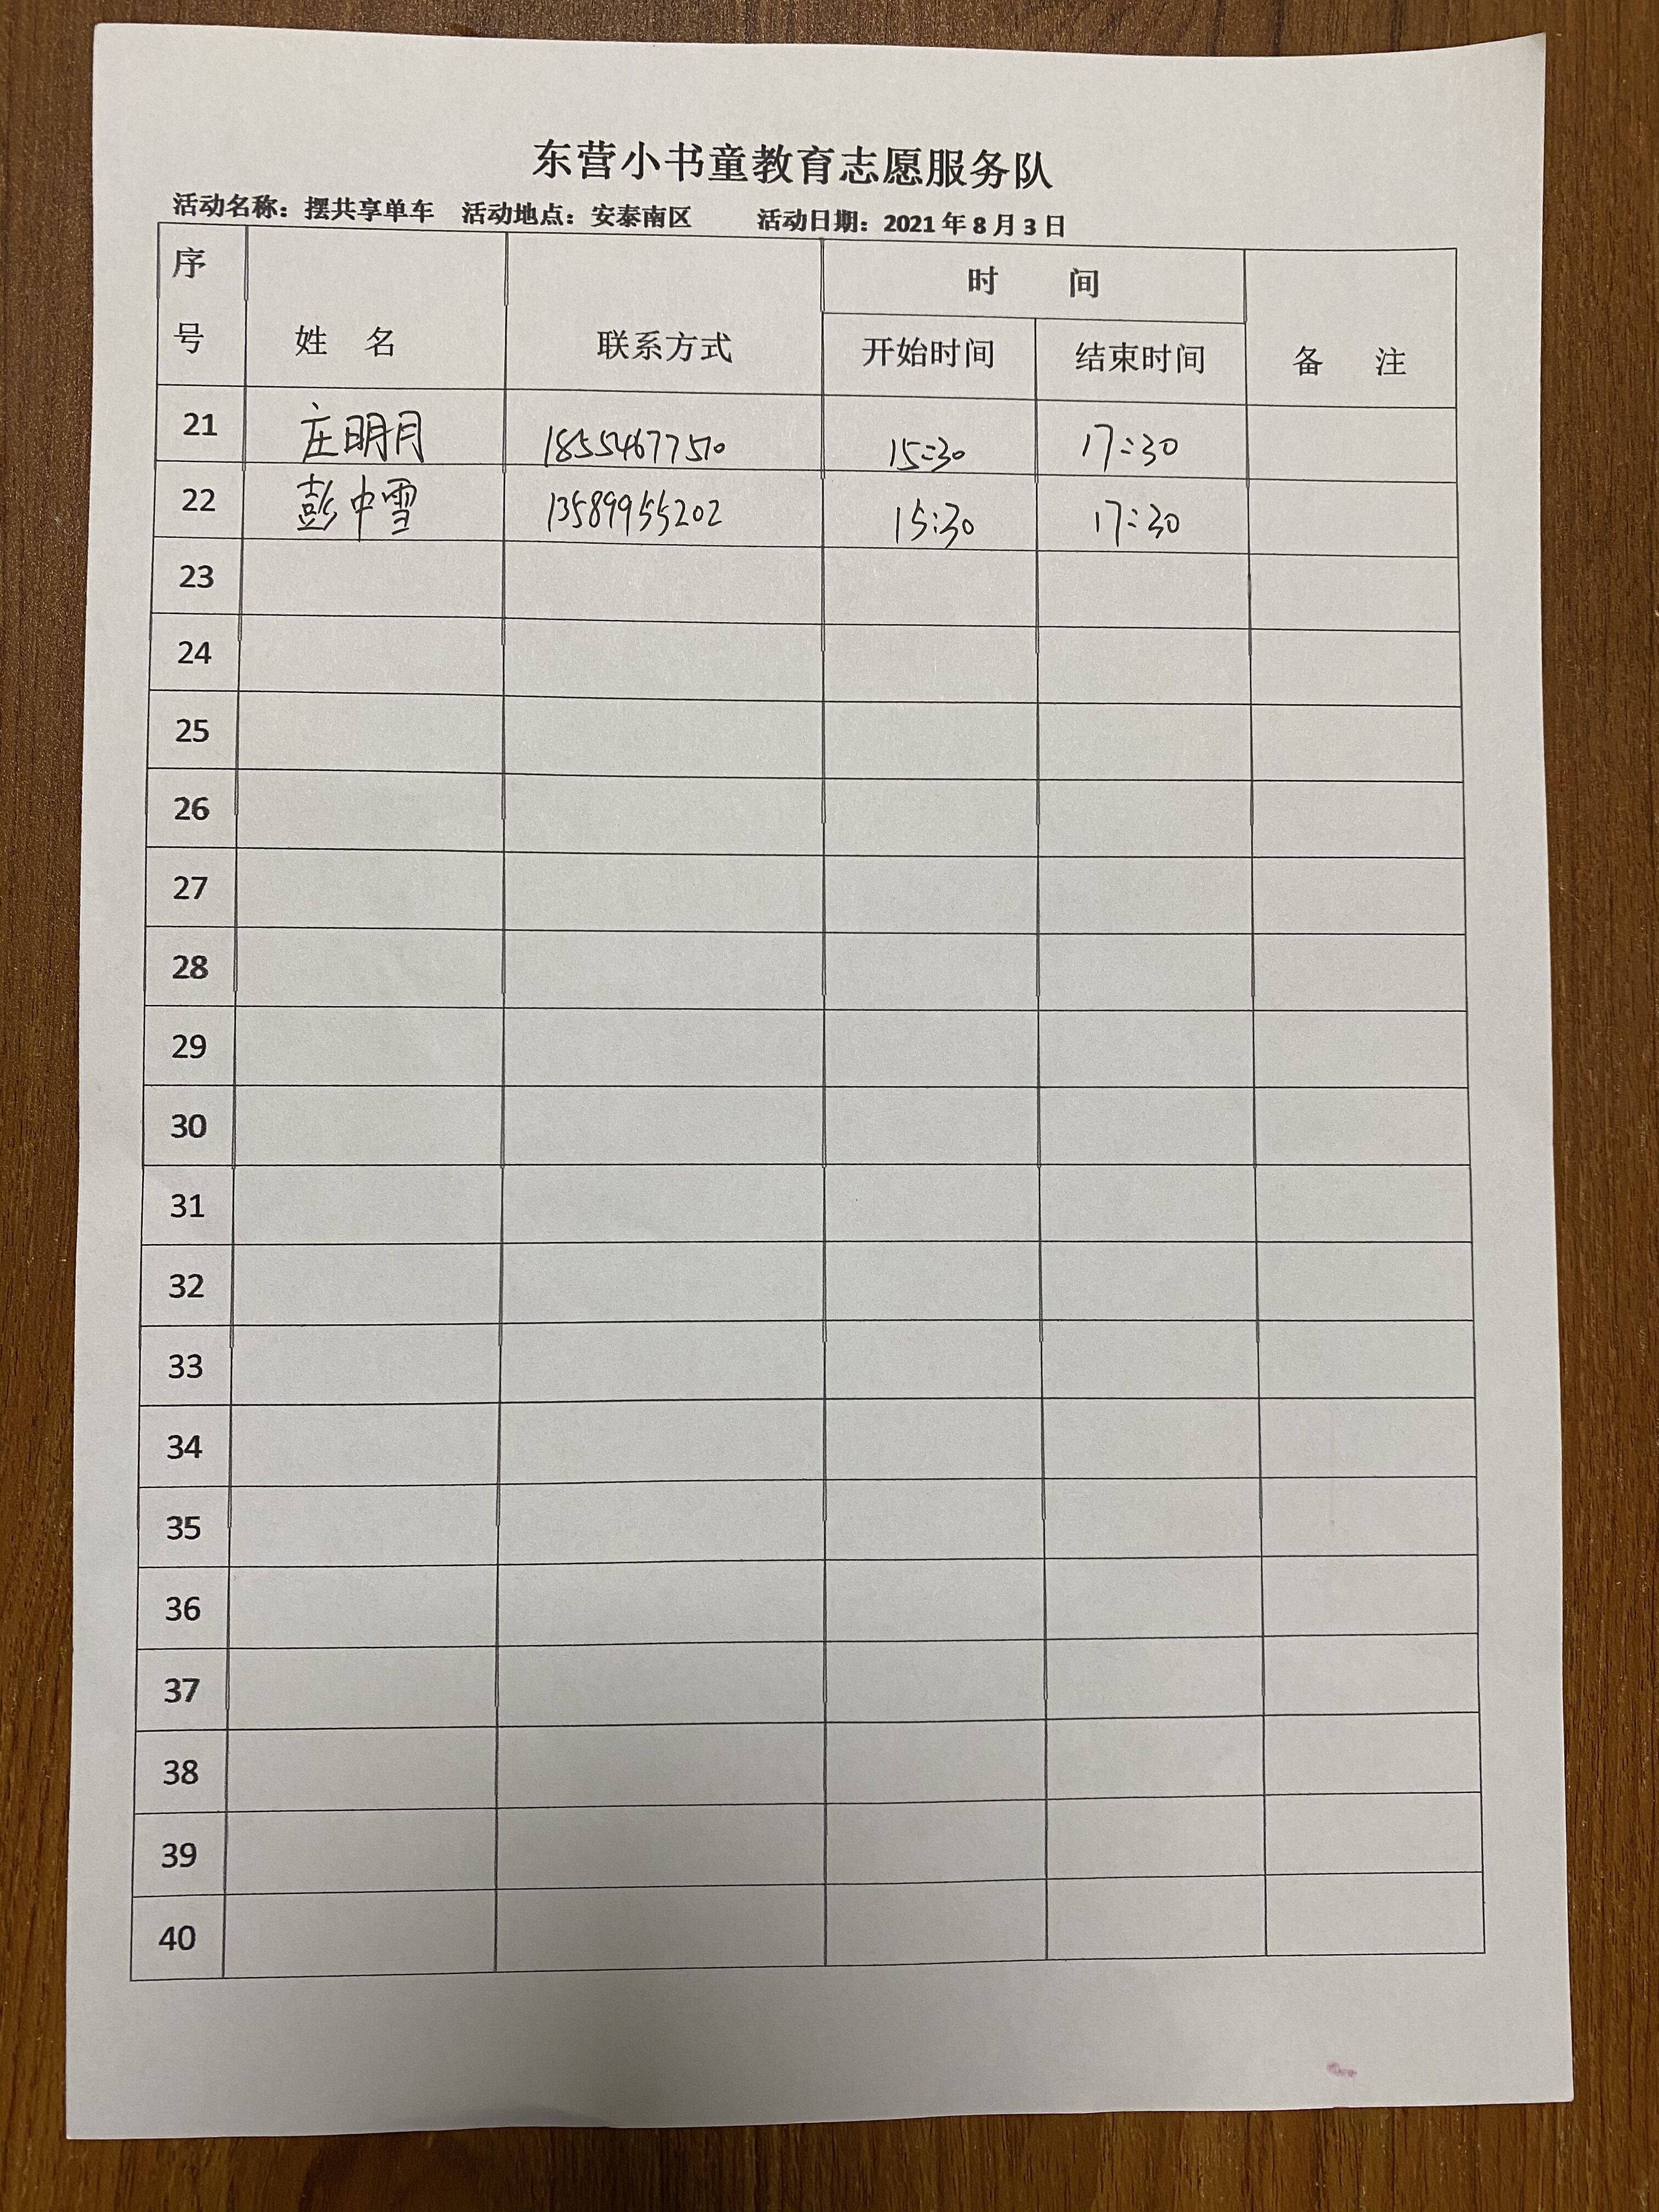 东营小书童教育志愿服务队
活动名称：摆共享单车 活动地点：安泰南区 活动日期：2021 年 8 月 3 日
序号 姓 名 联系方式 时 间 备 注
开始时间 结束时间
21 庄明月 18554677510 15:30 17:30
22 彭中雪 13589955202 15:30 17:30
23
24
25
26
27
28
29
30
31
32
33
34
35
36
37
38
39
40